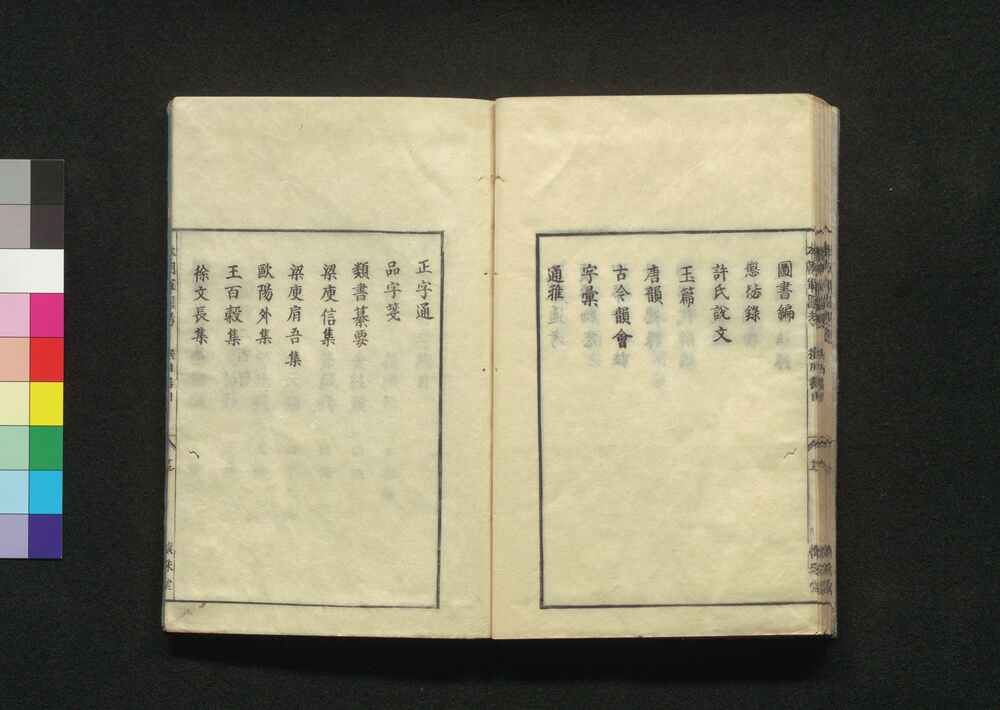 圖書編
許氏說文
玉篇
唐韻
古今韻會
字彙
通雅
正字通
品字箋
類書纂要
梁庾信集
梁庾肩吾集
歐陽外集
王百穀集
徐文長集